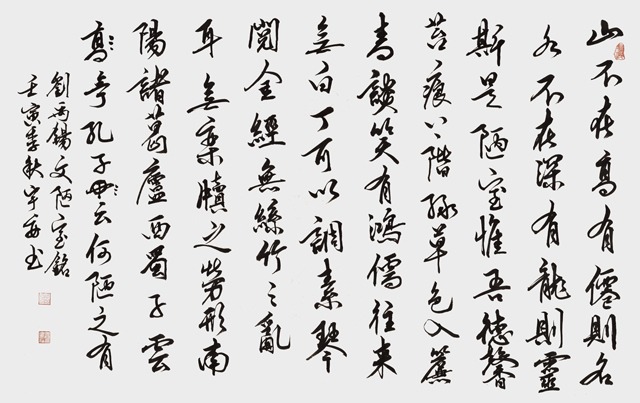 山不在高有僊則名
水不在深有龍則靈
斯是陋室惟吾德馨
苔痕上階綠草色入簾
青談笑有鴻儒往來
無白丁可以調素琴
閱金經無絲竹之亂
耳無案牘之勞形南
陽諸葛廬西蜀子雲
亭孔子云何陋之有
劉禹錫文陋室銘
壬寅季秋书